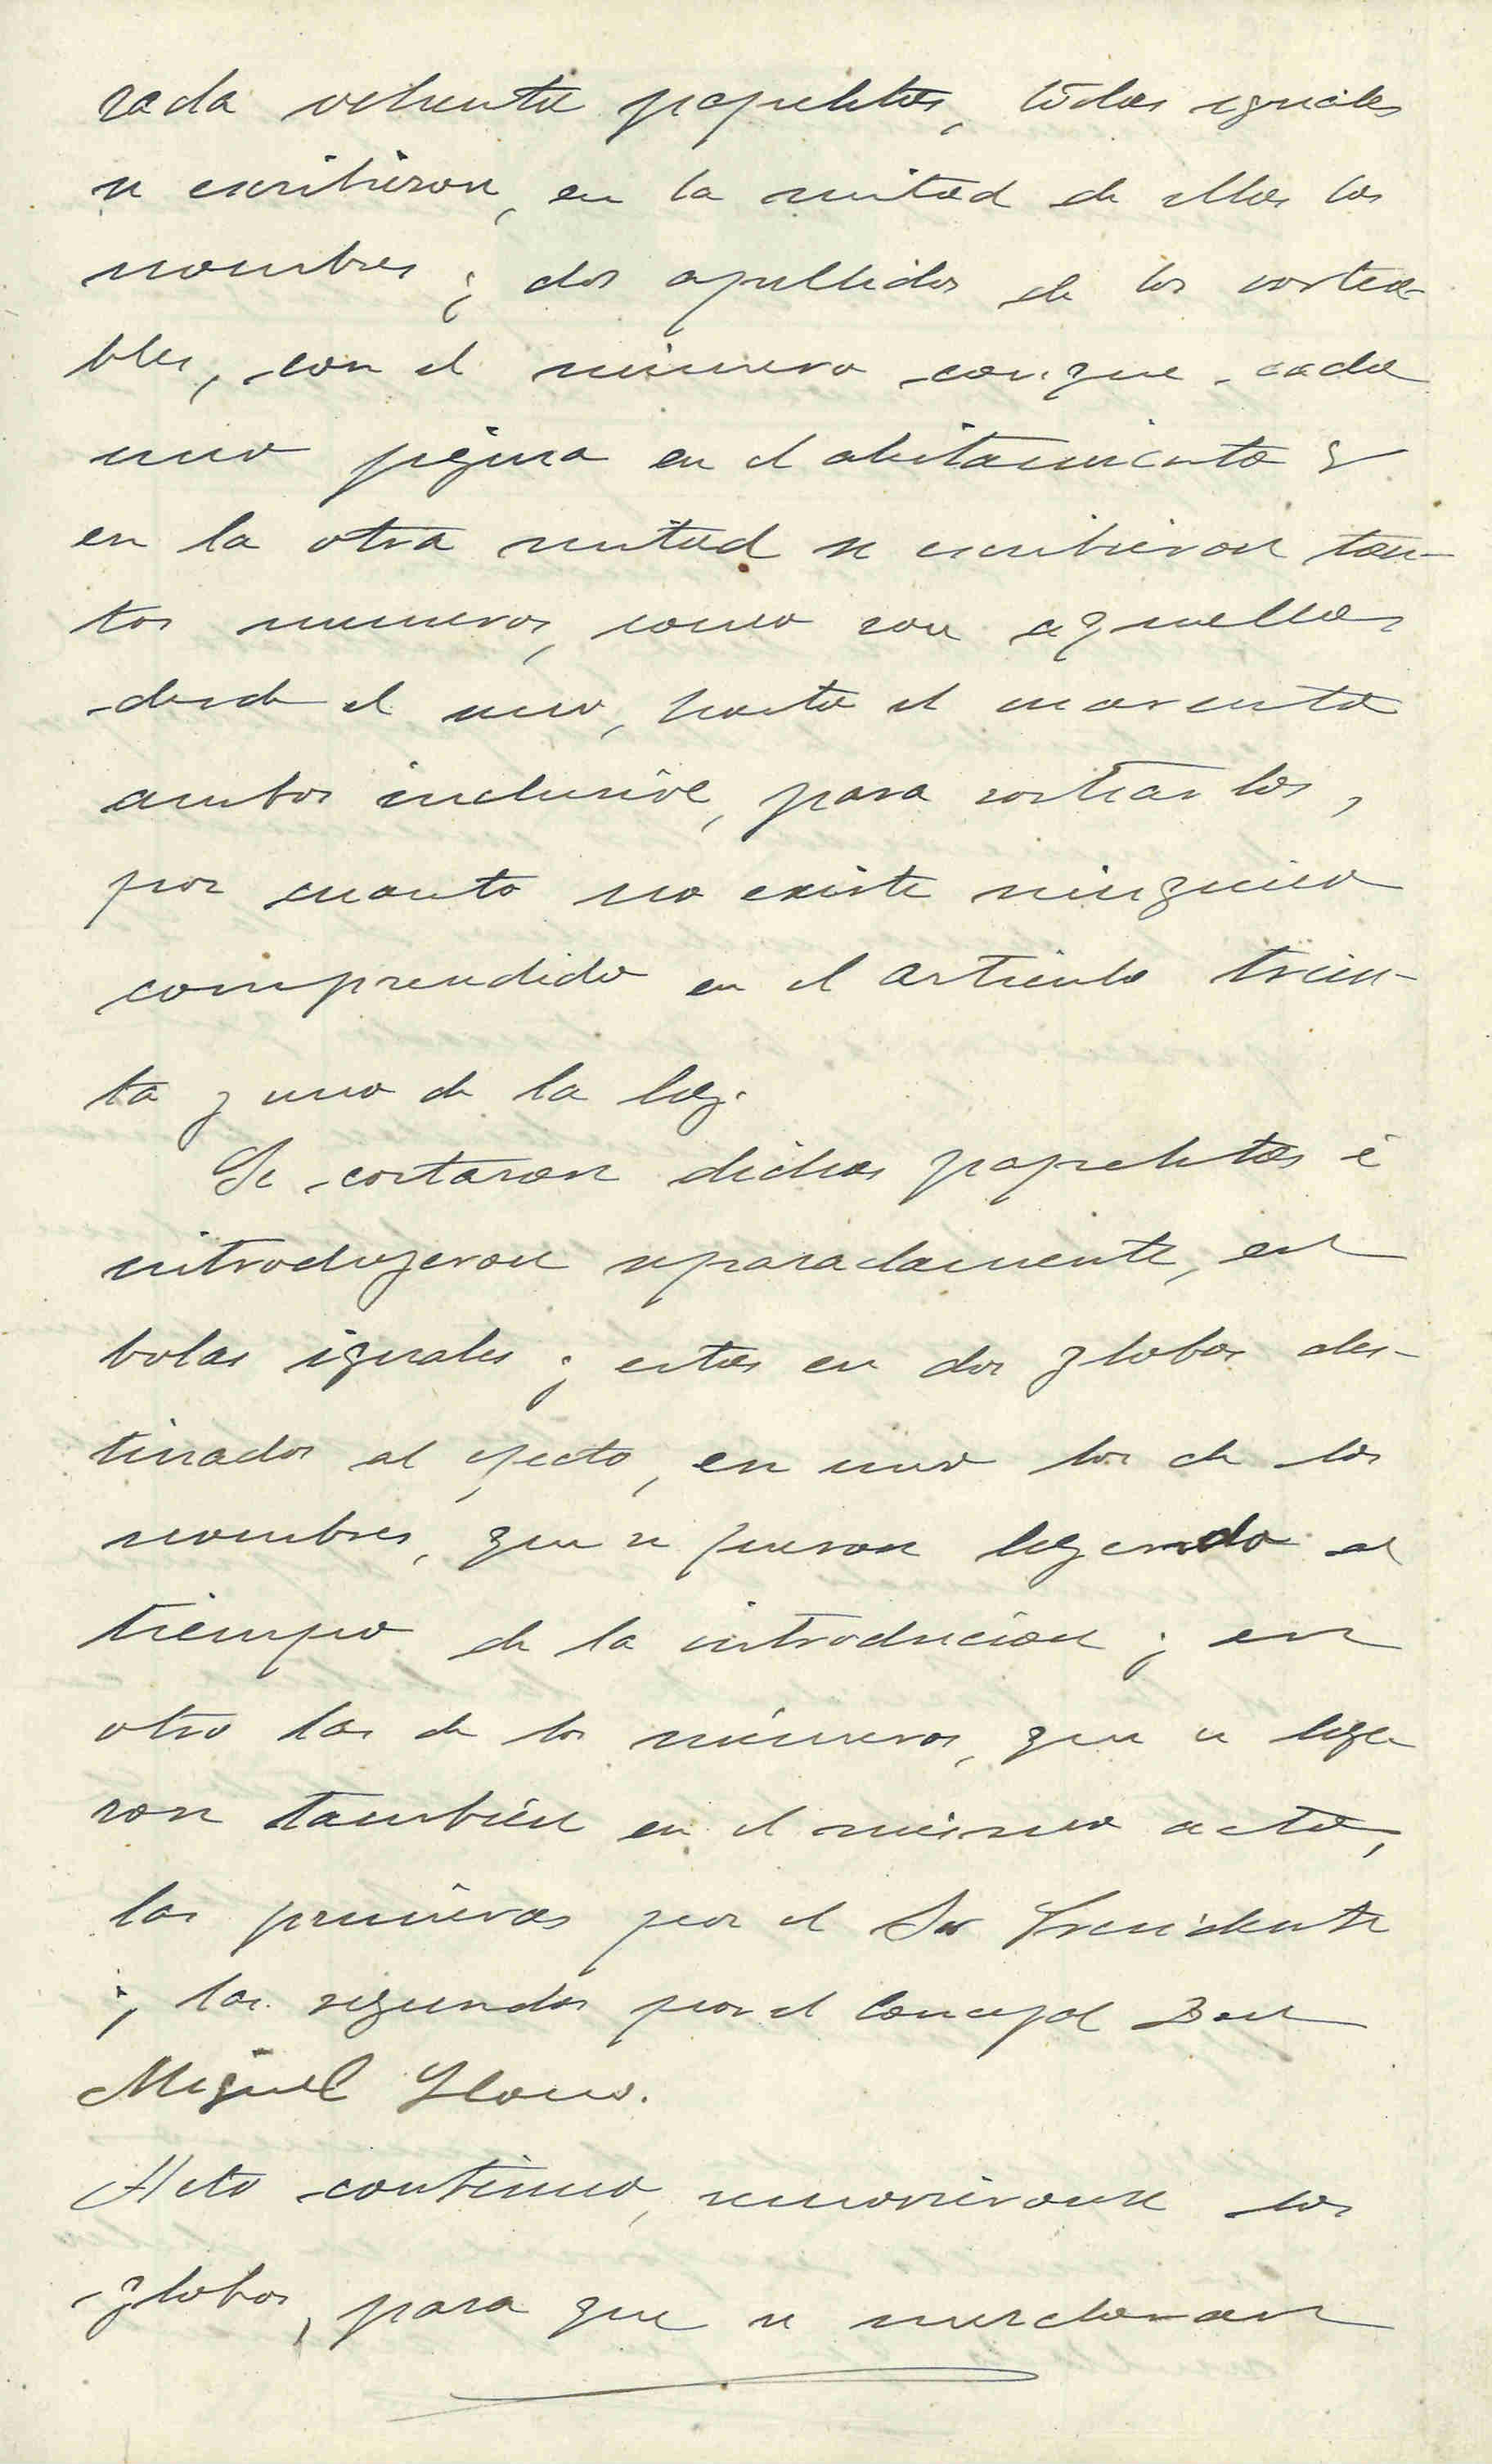 rada ochenta papeletas, todas iguales
se escribieron, en la mitad de ellas los
nombres y dos apellidos de los sortea-
bles, con el número conque cada
uno figura en el alistamiento y
en la otra mitad se escribieron tan-
tos numeros, como son aquellas
desde el uno, hasta el cuarenta
ambos inclusive, para sortearlos,
por cuanto no existe ninguno
comprendido en el articulo trein-
ta y uno de la ley.
Se cortaron dichas papeletas é
introdujeron separadamente, en
bolas iguales y estas en dos globos des-
tinados al efecto, en uno los de los
nombres, que se fueron leyendo al
tiempo de la introducion y en
otro las de los números, que se leye
ron también en el mismo acto,
las primeras por el Sor Presidente
y las segundas por el Concejal Don
Miguel
Acto continuo, removieronse los
globos, para que se mezclaran